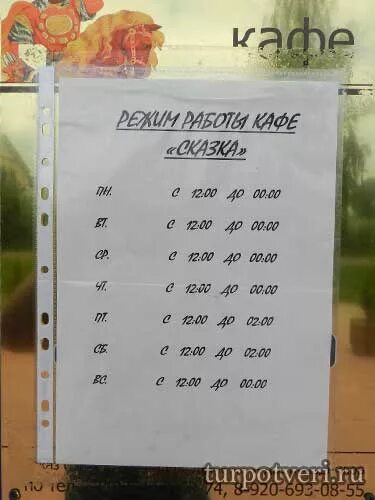 кафе
РЕЖИМ РАБОТЫ КАФЕ
«СКАЗКА»
ПН. С 12:00 ДО 00:00
ВТ. С 12:00 ДО 00:00
СР. С 12:00 ДО 00:00
ЧТ. С 12:00 ДО 00:00
ПТ. С 12:00 ДО 02:00
СБ. С 12:00 ДО 02:00
ВС. С 12:00 ДО 00:00
по 74, 8-920-693-08-55
turpotveri.ru